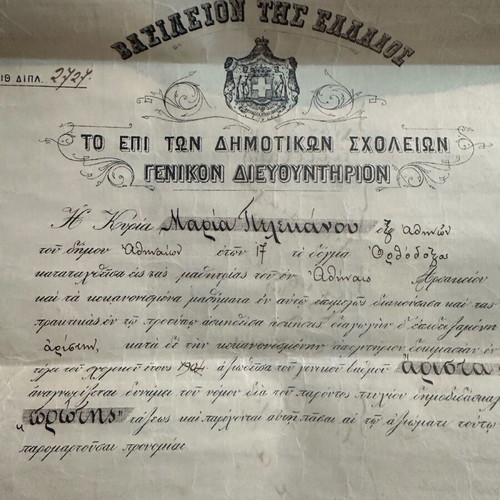 ΒΑΣΙΛΕΙΟΝ ΤΗΣ ΕΛΛΑΔΟΣ
ΙΘ ΔΙΠΛ. 2727.
ΤΟ ΕΠΙ ΤΩΝ ΔΗΜΟΤΙΚΩΝ ΣΧΟΛΕΙΩΝ
ΓΕΝΙΚΟΝ ΔΙΕΥΘΥΝΤΗΡΙΟΝ
Ἡ Κυρία Μαρία Πελεκάνου ἐξ Ἀθηνῶν
τοῦ δήμου Ἀθηναίων ἐτῶν 17 τὸ δόγμα Ὀρθόδοξος
καταταχθεῖσα εἰς τὰς μαθητρίας τοῦ ἐν Ἀθήναις Ἀρσακείου
καὶ τὰ κεκανονισμένα μαθήματα ἐν αὐτῷ ἐπιμελῶς διακούσασα καὶ τὰς
πρακτικὰς ἐν τῷ προτύπῳ ἀσκηθεῖσα ἀσκήσεις διαγωγὴν δ' ἐπιδειξαμένη
ἀρίστην, κατὰ δὲ τὴν κεκανονισμένην ἀπολυτήριον δοκιμασίαν ἐν
τέλει τοῦ σχολικοῦ ἔτους 1904 ἀξιωθεῖσα τοῦ γενικοῦ βαθμοῦ ἄριστα
ἀναγνωρίζεται δυνάμει τοῦ νόμου διὰ τοῦ παρόντος πτυχίου δημοδιδάσκαλ
„πρώτης" τάξεως καὶ παρέχονται αὐτῇ πᾶσαι αἱ τῷ ἀξιώματι τούτῳ
παρομαρτοῦσαι προνομίαι.